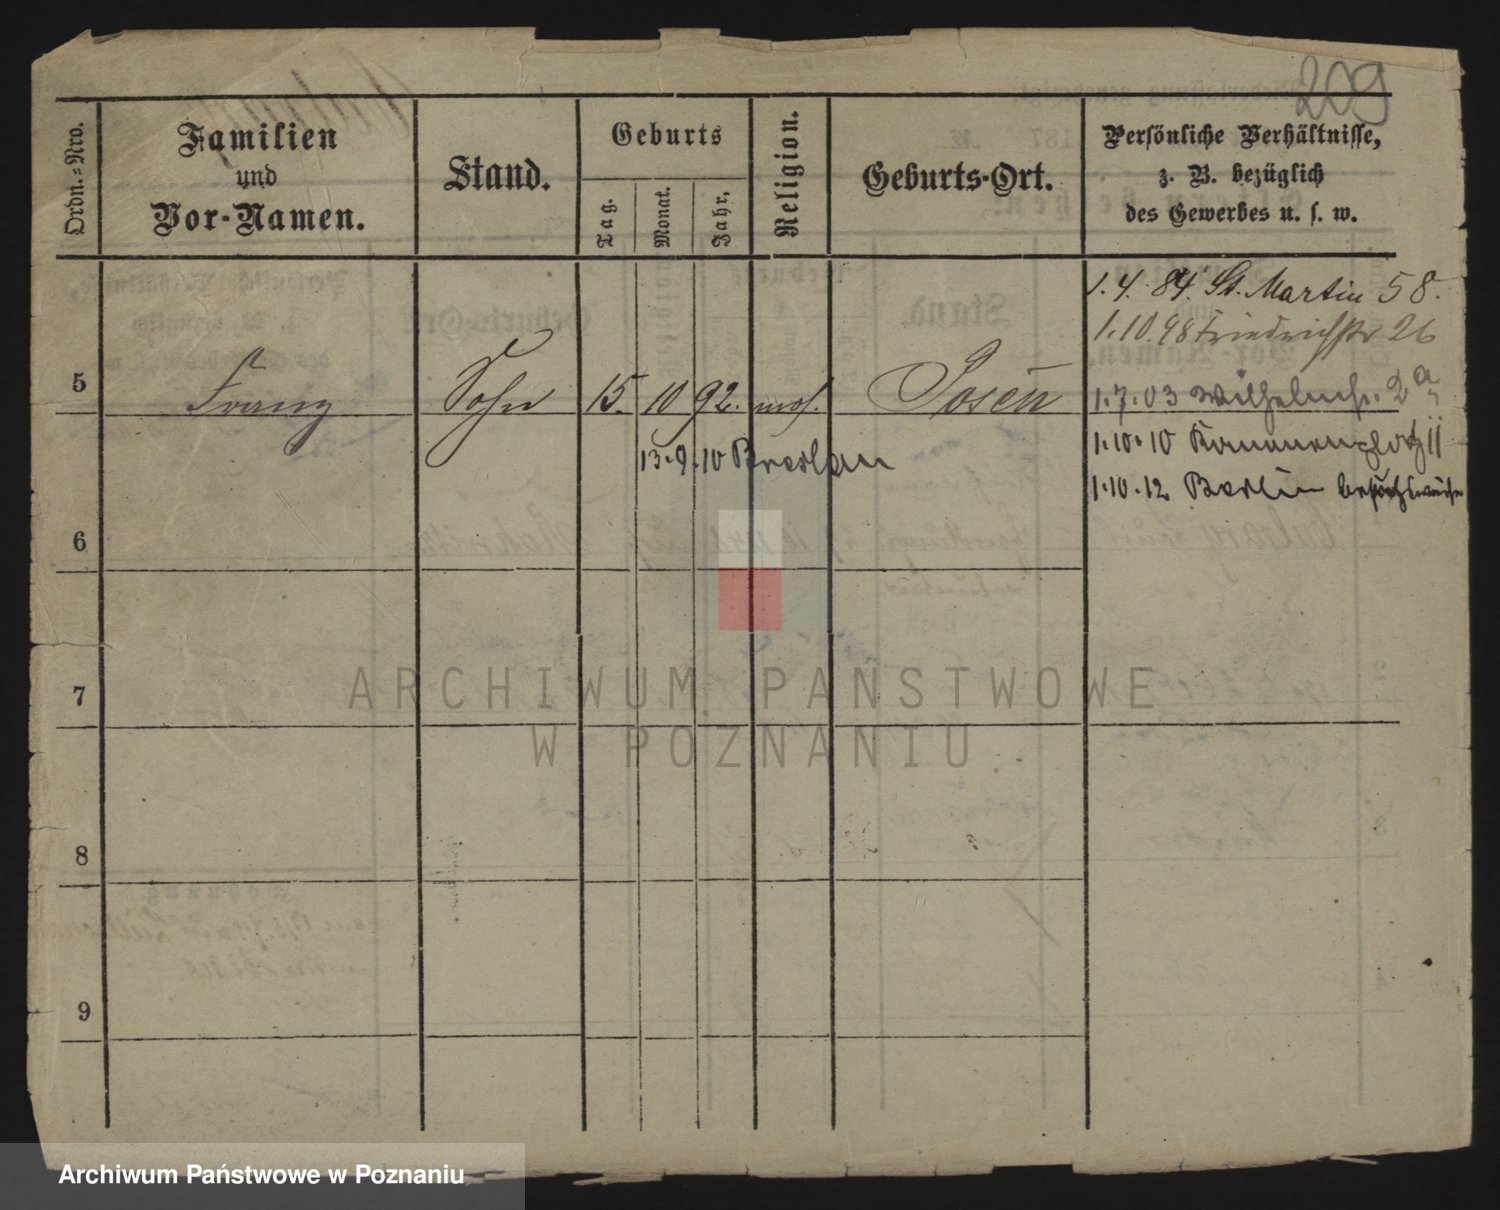 209
Ordn.=Nro.
Familien
und
Vor-Namen.
Stand.
Geburts
Tag.
Monat.
Jahr.
Religion.
Geburts-Ort.
Persönliche Verhältnisse,
z. B. bezüglich
des Gewerbes u. s. w.
1. 4. 84. St. Martin 58.
1. 10. 98 Friedrichstr 26
5 Franz Sohn 15. 10 92. mos. Posen 1. 7. 03 Wilhelmstr. 2a
13. 9. 10 Breslau
1. 10. 10
1. 10. 12 Berlin
6
7
8
9
ARCHIWUM PAŃSTWOWE
W POZNANIU
Archiwum Państwowe w Poznaniu